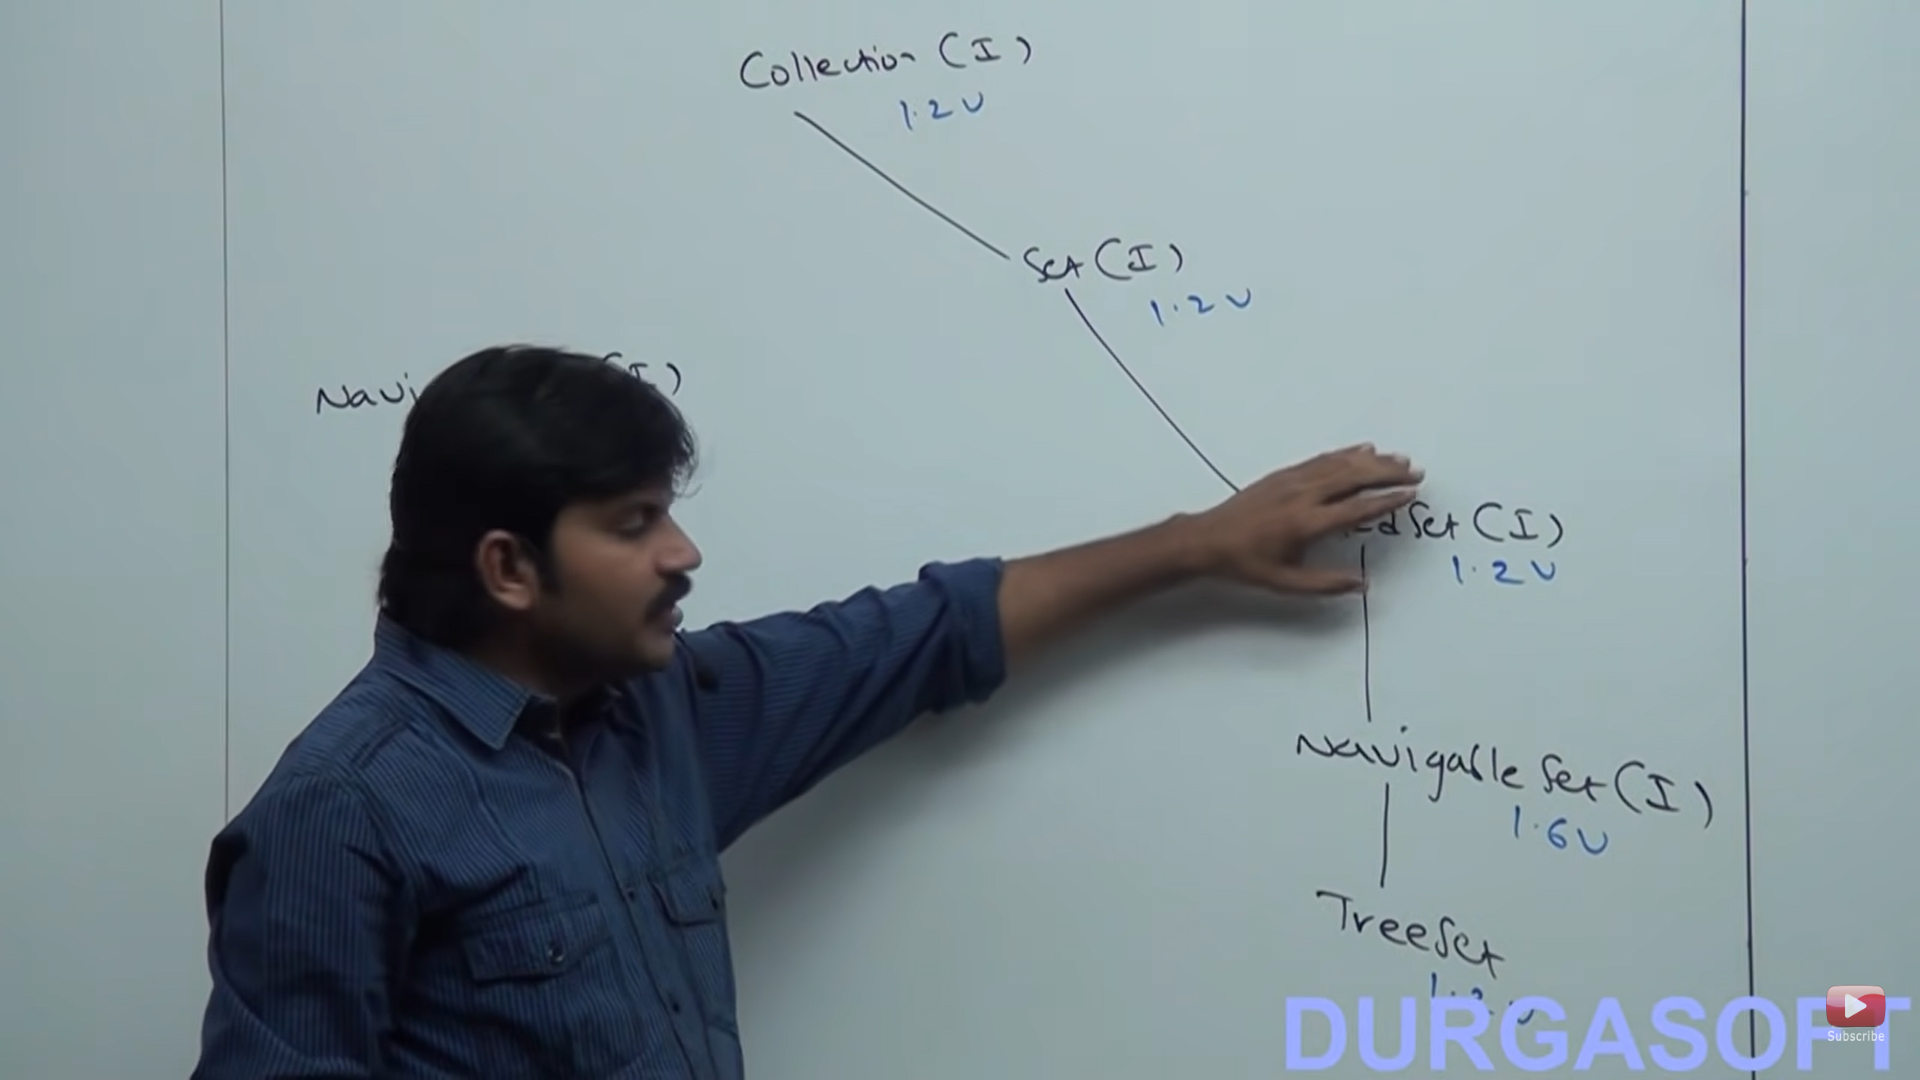 Collection (I)
1.2 V
Set (I)
1.2 V
(I)
Set (I)
1.2 V
Navigable Set (I)
1.6 V
TreeSet
DURGASOFT
Subscribe